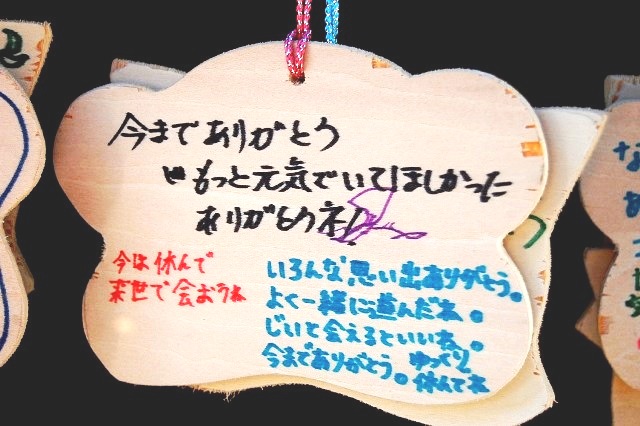 今までありがとう
もっと元気でいてほしかった
ありがとうネ!
今は休んで
来世で会おうね
いろんな思い出ありがとう。
よく一緒に遊んだね。
じいと会えるといいね。
今までありがとう。ゆっくり
休んでね
な